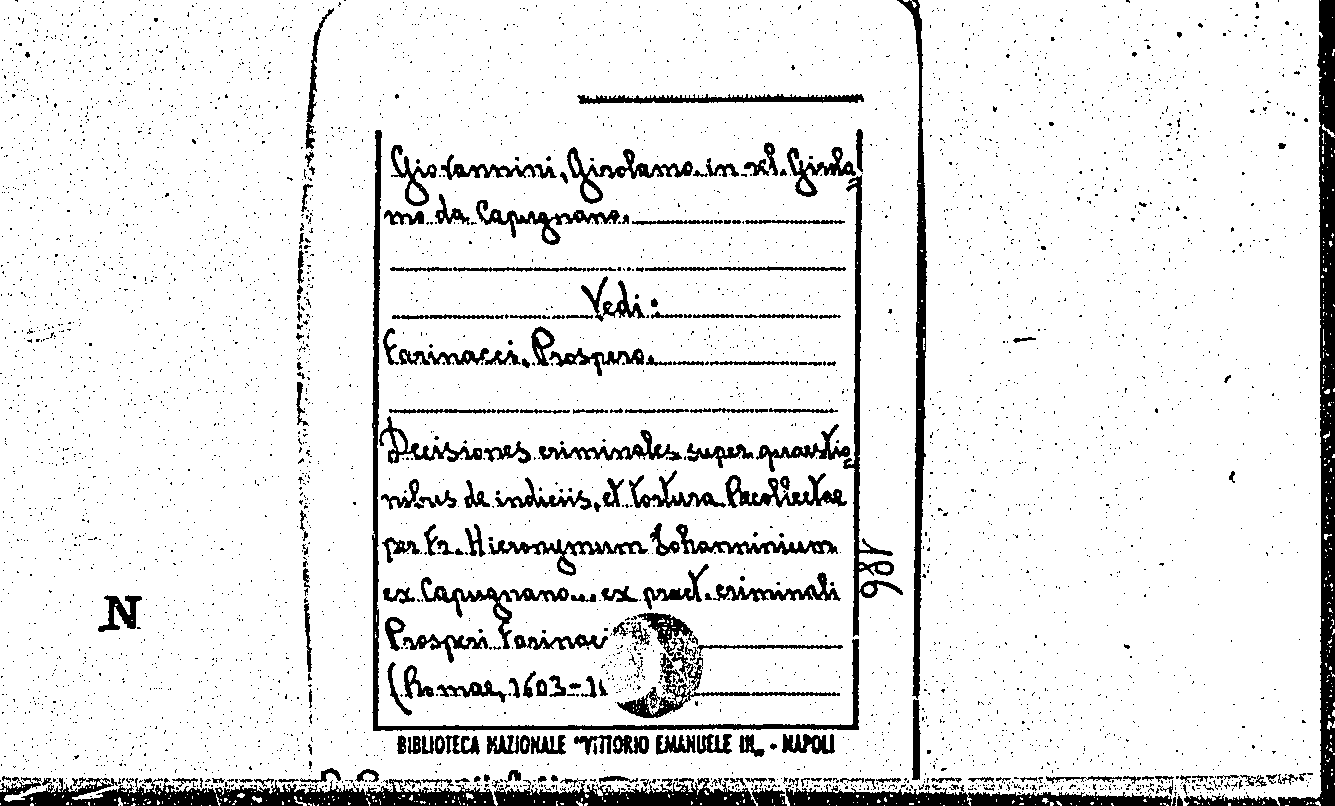 Giovannini, Girolamo. in rel. Girola=
mo da Capugnano.
Vedi:
Farinacci, Prospero.
Decisiones criminales super quaestio=
nibus de indiciis, et tortura Recollectae
per Fr. Hieronymum Iohanninium
ex Capugnano... ex pract. criminali
Prosperi Farinaci
(Romae, 1603-1
BIBLIOTECA NAZIONALE "VITTORIO EMANUELE III„ - NAPOLI
N
186